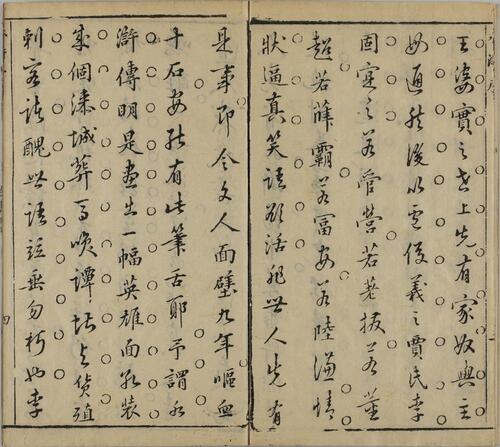 王婆實之世上先有家奴與主
母通然後以盧俊義之賈氏李
固實之若管營若差撥若董
超若薛霸若富安若陸謙情
狀逼真笑語欲活非世人先有
是事即令文人面壁九年嘔血
十石安能有此筆舌耶予謂水
滸傳明是畫生一幅英雄面孔裝
成個漆城葬馬噱譚堪與貨殖
刺客諸醜世語竝垂勿朽也李
四